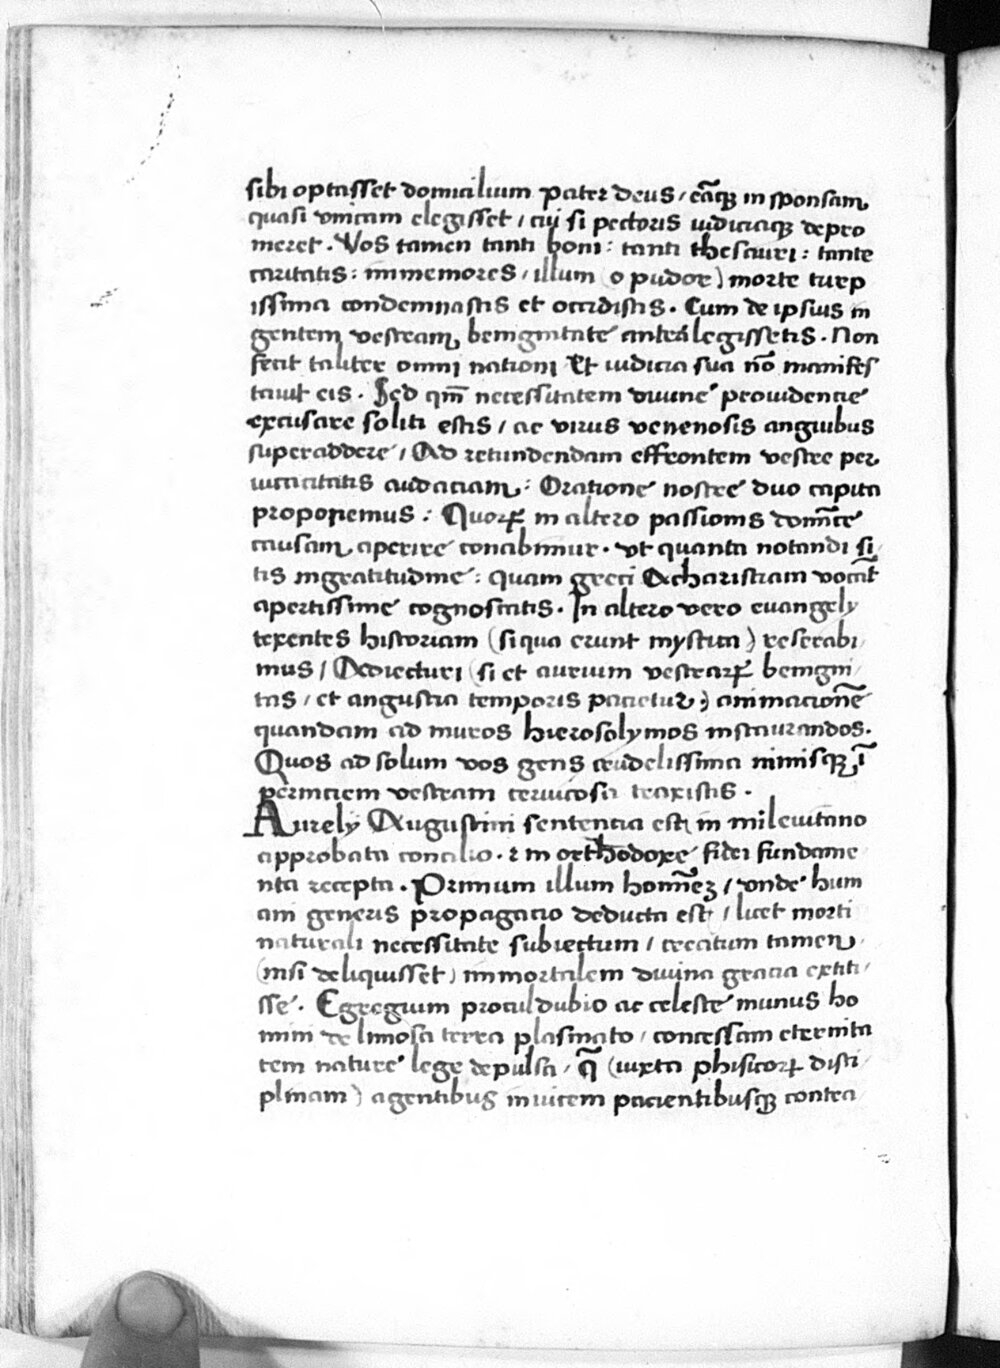 sibi optasset domicilium pater deus / eāqꝫ in sponsam
quasi vnicam elegisset / cui si pectoris iudiciaqꝫ depro
meret. Vos tamen tanti boni: tanti thesauri: tante
caritatis: immemores / illum (o pudor) morte turp
issima condemnastis et occidistis. Cum de ipsius in
gentem vestram benignitate antea legissetis. Non
fecit taliter omni nationi Et iudicia sua nō manifes
tauit eis. Sed qm̄ necessitatem diuine prouidencie
excusare soliti estis / ac virus venenosis anguibus
superaddere / Ad retundendam effrontem vestre per
uicacitatis audaciam: Oratione nostre duo capita
proponemus: Quoꝝ in altero passionis domīce
causam aperire conabimur. vt quanta notandi si
tis ingratitudine: quam greci Acharistiam vocāt
apertissime cognoscatis. In altero vero euangely
texentes historiam (si qua erunt mystica) reserabi
mus / Adiecturi (si et aurium vestraꝝ benigni
tas / et angustia temporis pacietur) animacionē
quandam ad muros hierosolymos instaurandos.
Quos ad solum vos gens crudelissima nimisqꝫ ī
perniciem vestram ceruicosa traxistis.
Aurely Augustini sentencia est in mileuitano
approbata concilio. ⁊ in orthodoxe fidei fundame
nta recepta. Primum illum homīeꝫ / vnde hum
ani generis propagacio deducta est / licet morti
naturali necessitate subiectum / creatum tamen
(nisi deliquisset) immortalem diuina gracia extiti
sse. Egregium procul dubio ac celeste munus ho
mini de limosa terra plasmato / concessam eternita
tem nature lege depulsa / ꝙ (iuxta phisicoꝝ disci
plinam) agentibus inuicem pacientibusqꝫ contra